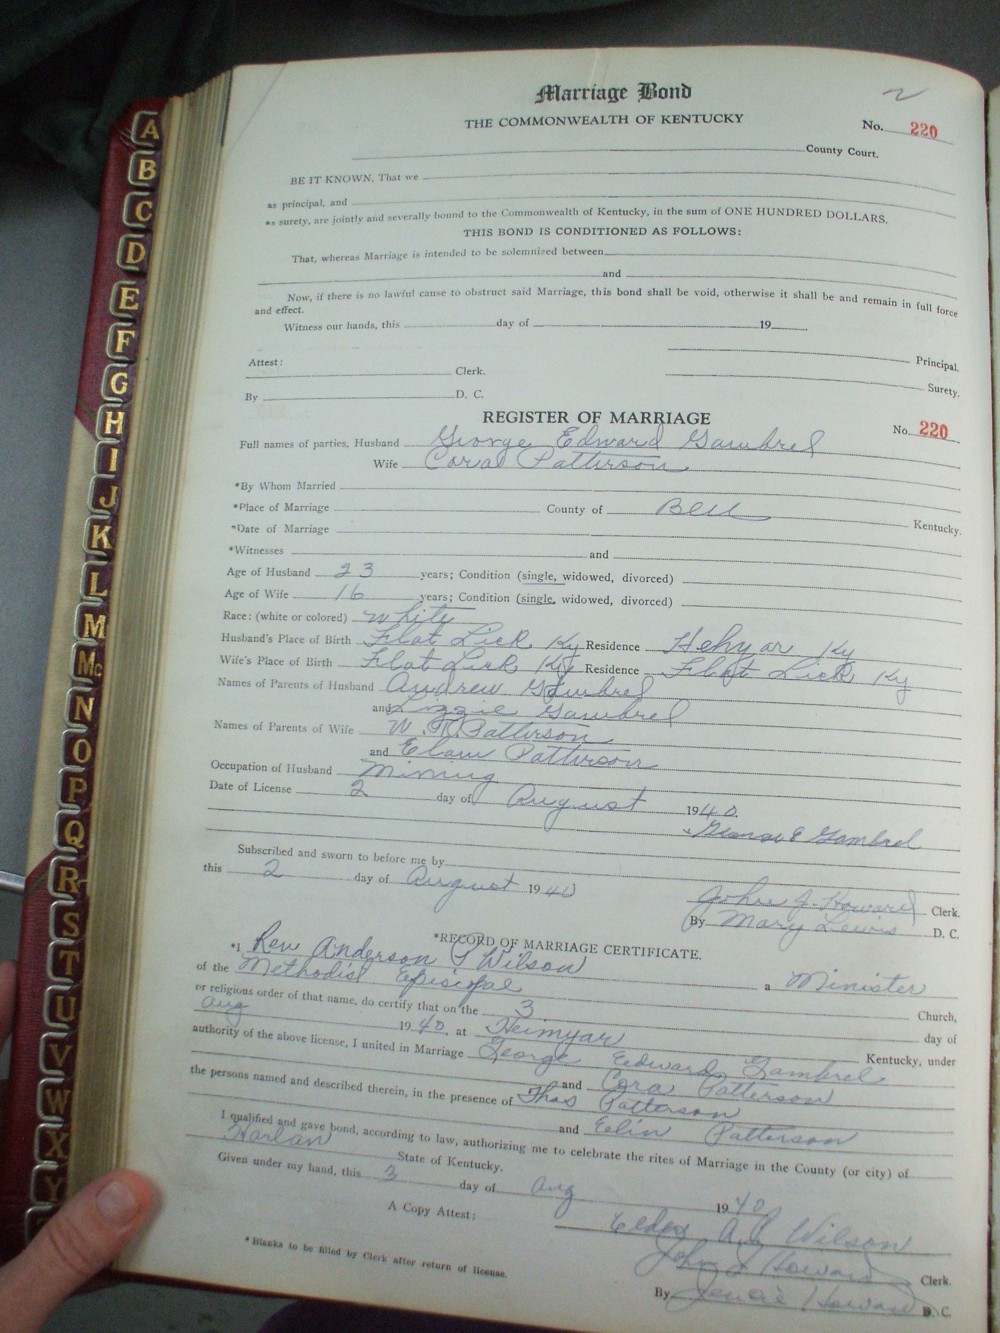 A
B
C
D
E
F
G
H
I
J
K
L
M
Mc
N
O
P
Q
R
S
T
U
V
W
X
Y
Marriage Bond
THE COMMONWEALTH OF KENTUCKY
No. 220
County Court.
BE IT KNOWN, That we
as principal, and
as surety, are jointly and severally bound to the Commonwealth of Kentucky, in the sum of ONE HUNDRED DOLLARS.
THIS BOND IS CONDITIONED AS FOLLOWS:
That, whereas Marriage is intended to be solemnized between
and
Now, if there is no lawful cause to obstruct said Marriage, this bond shall be void, otherwise it shall be and remain in full force
and effect.
Witness our hands, this day of 19
Principal.
Attest: Clerk.
Surety.
By D. C.
REGISTER OF MARRIAGE
No. 220
Full names of parties, Husband George Edward Gambrel
Wife Cora Patterson
*By Whom Married
*Place of Marriage County of Bell Kentucky.
*Date of Marriage
*Witnesses and
Age of Husband 23 years; Condition (single, widowed, divorced)
Age of Wife 16 years; Condition (single, widowed, divorced)
Race: (white or colored) white
Husband's Place of Birth Flat Lick Ky Residence Hehyar Ky
Wife's Place of Birth Flat Lick Ky Residence Flat Lick Ky
Names of Parents of Husband Andrew Gambrel
and Lizzie Gambrel
Names of Parents of Wife W. R. Patterson
and Patterson
Occupation of Husband Mining
Date of License 2 day of August 1940.
George E Gambrel
Subscribed and sworn to before me by
this 2 day of August 1940
John J. Howard Clerk.
By Mary Lewis D. C.
*RECORD OF MARRIAGE CERTIFICATE.
*I Rev Anderson P Wilson a Minister
of the Methodist Episcpal Church,
or religious order of that name, do certify that on the 3 day of
Aug 1940, at Heimyar Kentucky, under
authority of the above license, I united in Marriage George Edward Gambrel
and Cora Patterson
the persons named and described therein, in the presence of Thos Patterson
and Elin Patterson
I qualified and gave bond, according to law, authorizing me to celebrate the rites of Marriage in the County (or city) of
Harlan State of Kentucky.
Given under my hand, this 3 day of Aug 1940
Elder A. P. Wilson
A Copy Attest: John J Howard Clerk.
By Howard D. C.
*Blanks to be filled by Clerk after return of license.